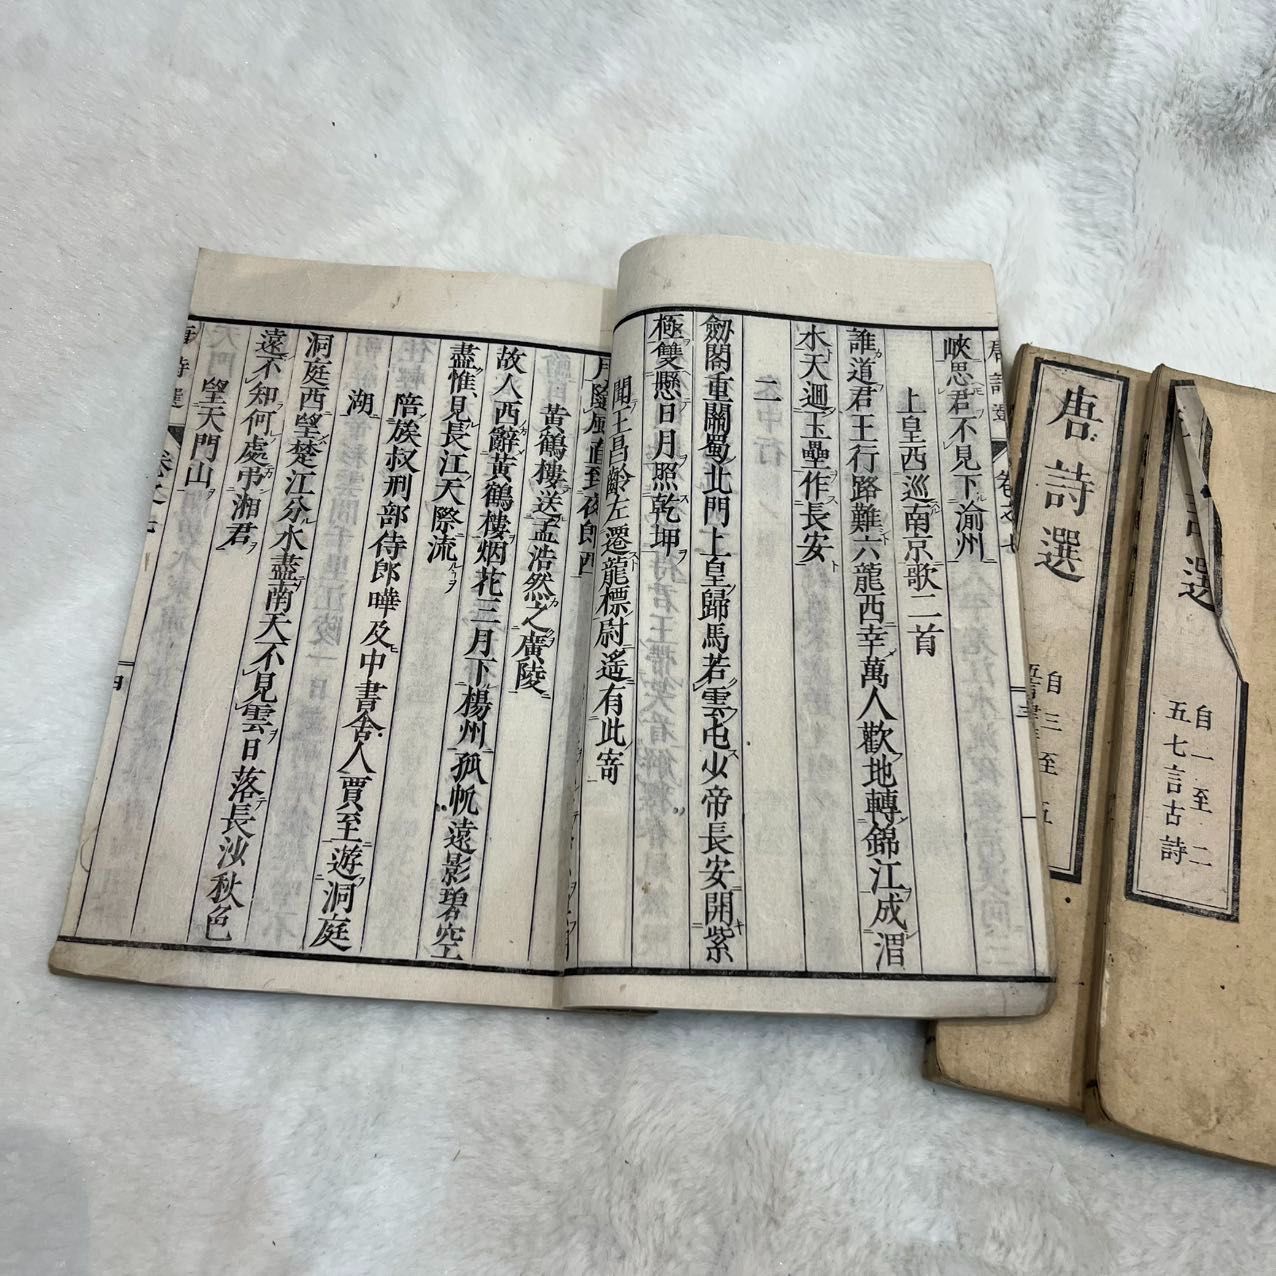 峽思君不見下渝州
上皇西巡南京歌二首
誰道君王行路難六龍西幸萬人歡地轉錦江成渭
水天迴玉壘作長安
二
劔閣重關蜀北門上皇歸馬若雲屯少帝長安開紫
極雙懸日月照乾坤
聞王昌齡左遷龍標尉遙有此寄
風直到夜郎西
黃鶴樓送孟浩然之廣陵
故人西辭黃鶴樓烟花三月下楊州孤帆遠影碧空
盡惟見長江天際流
陪族叔刑部侍郎曄及中書舍人賈至遊洞庭
湖
洞庭西望楚江分水盡南天不見雲日落長沙秋色
遠不知何處弔湘君
望天門山
唐詩選
自三至五
選
自一至二
五七言古詩